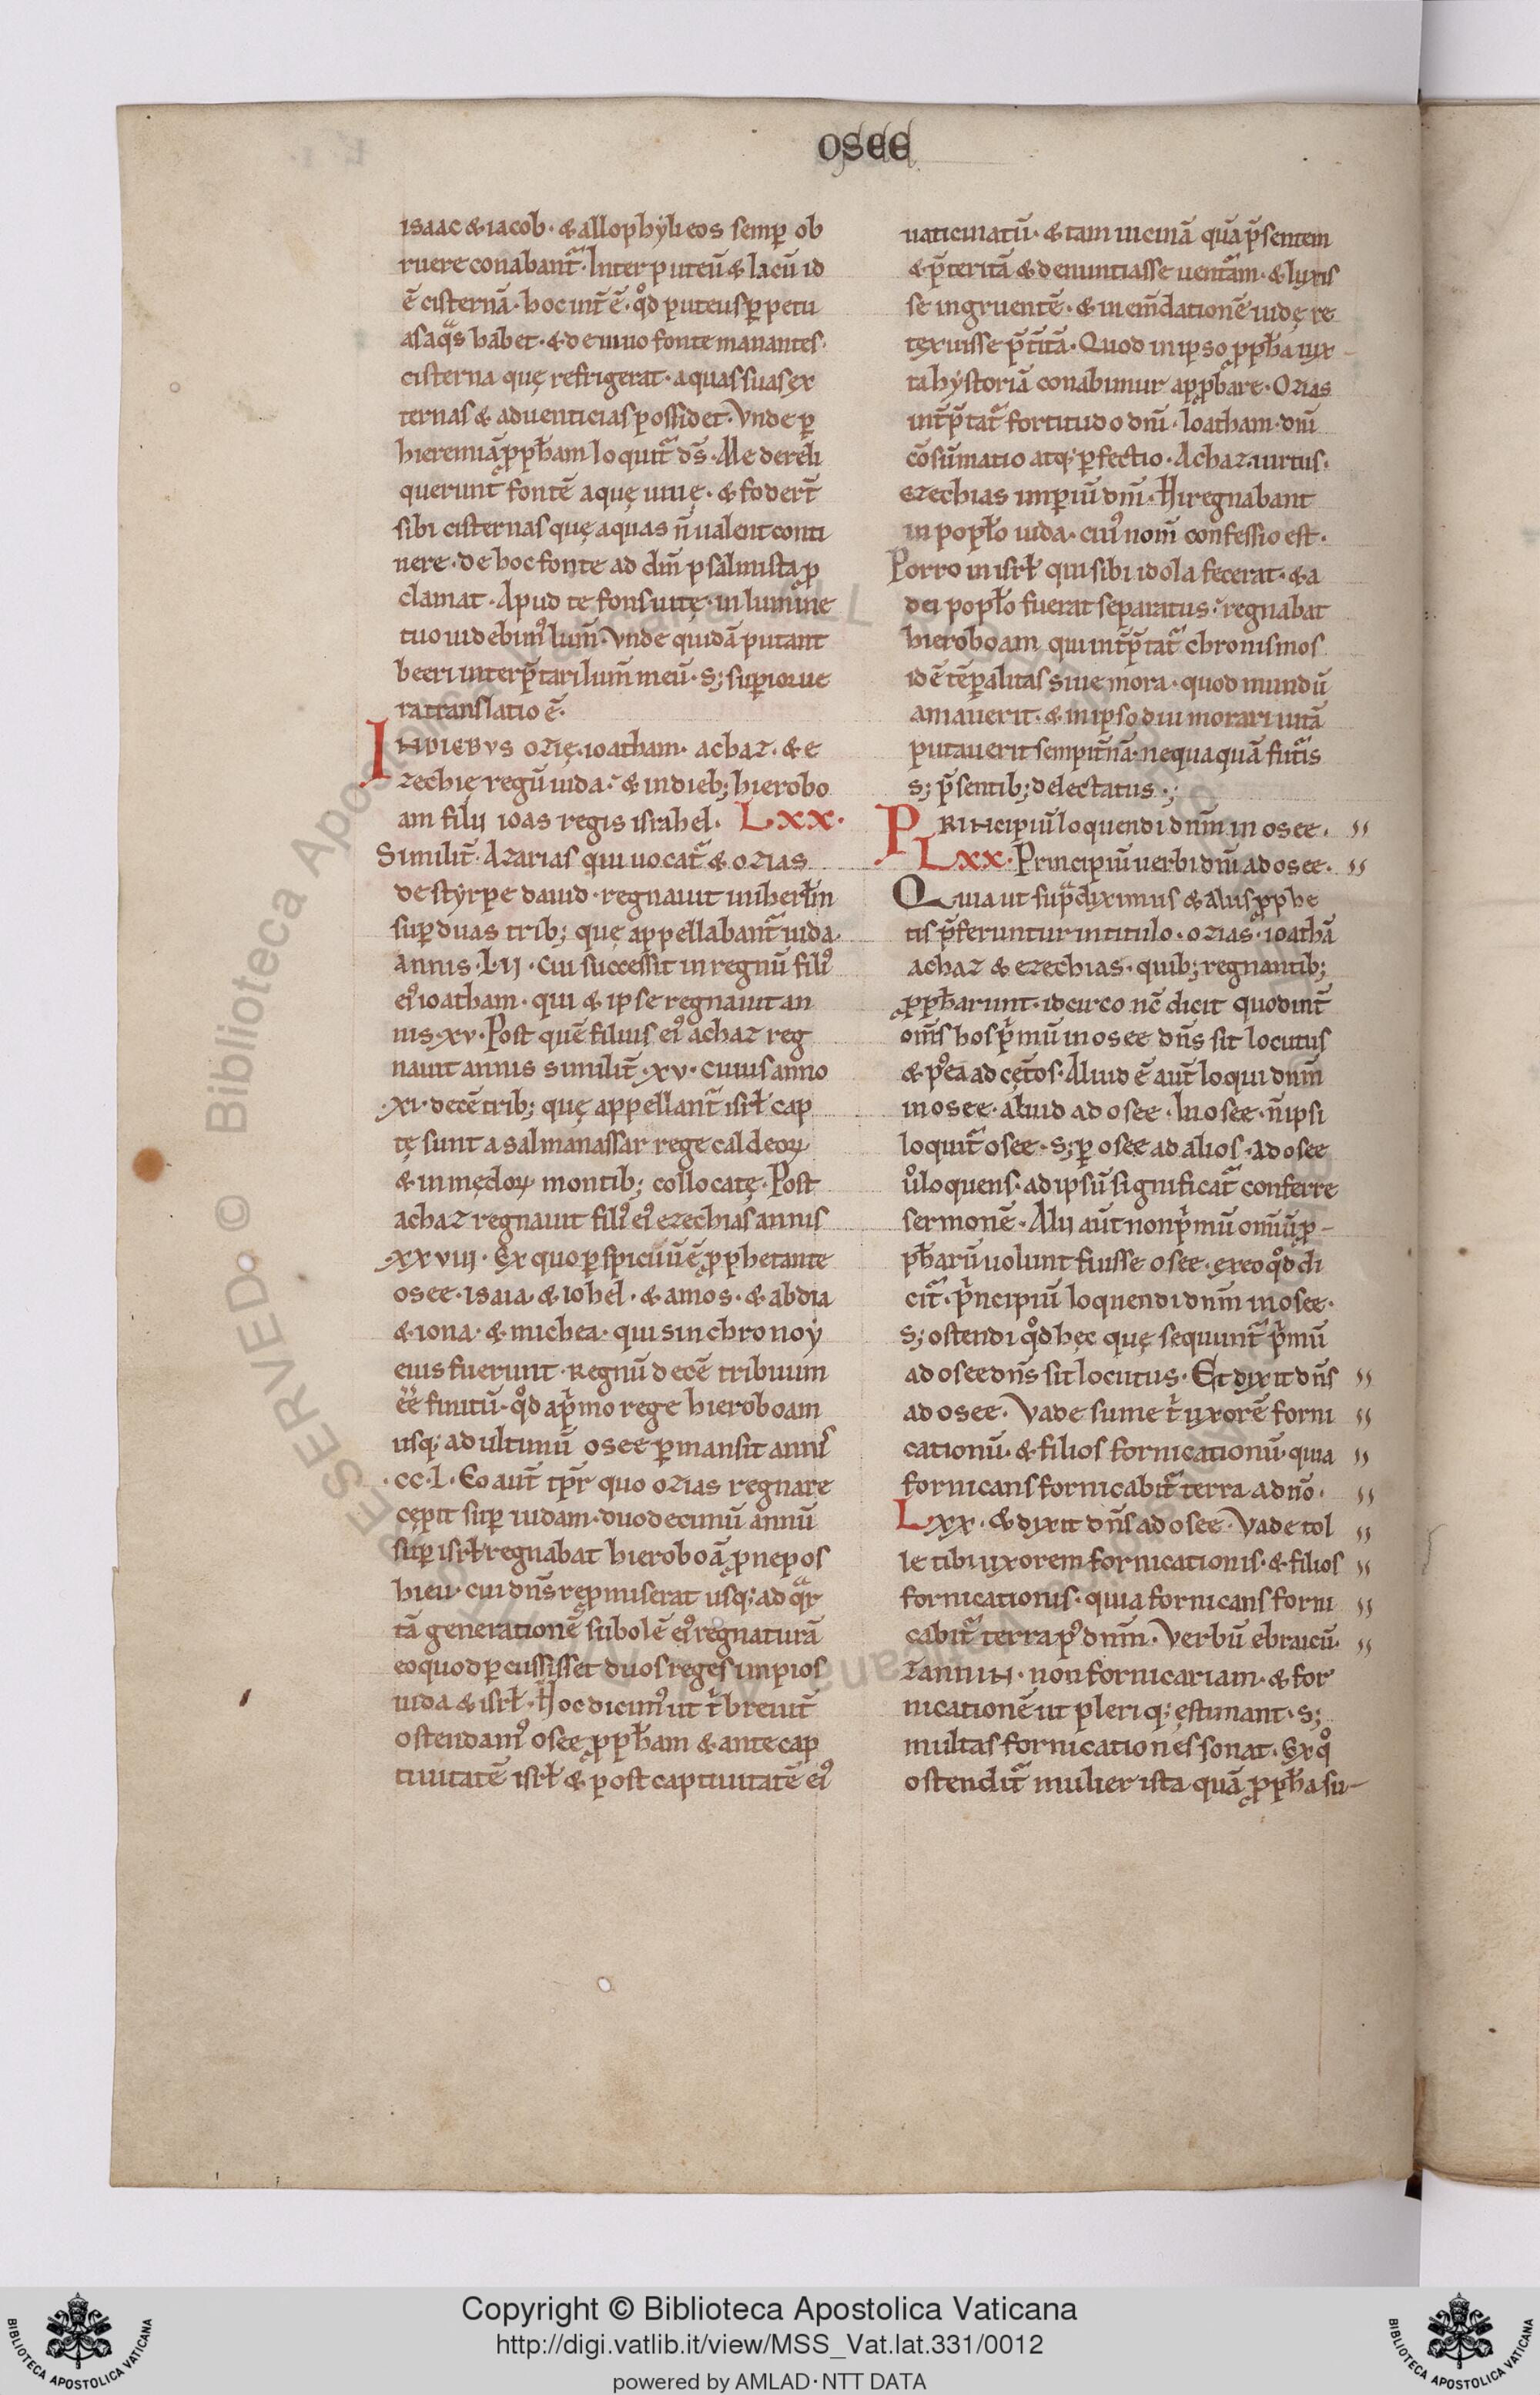 OSEE
isaac & iacob · & allophỳleos semꝑ ob
ruere conabant᷑ · Inter puteū & lacū id
ē cisternā · hoc int̄ ē · qd̊ puteus ꝑpetu
as aqᷓs habet · & de uiuo fonte manantes ·
cisterna quę refrigerat · aquas suas ex
ternas & aduenticias possidet · Vnde ꝑ
hieremiā ꝓph̄am loquit᷑ ds̄ · Me dereli
querunt fontē aquę uiuę · & foder̄t
sibi cisternas quę aquas n̄ ualent conti
nere · de hoc fonte ad dm̄ psalmista ꝓ
clamat · Apud te fons uitę · in lumine
tuo uidebimꝰ lum̄ · Vnde quidā putant
beeri interp̄tari lum̄ meū · s; suꝑior ue
ra translatio ē ·
IN DIEBVS ozię · ioatham · achaz · & e
zechię regū iuda · & in dieb; hierobo
am filii ioas regis israhel · LXX ·
Similit̄ · Azarias qui uocat᷑ & ozias
de stỳrpe dauid · regnauit in iherłm
suꝑ duas trib; quę appellabant᷑ iuda ·
annis · LII · cui successit in regnū filiꝰ
eiꝰ ioatham · qui & ipse regnauit an
nis · xv · Post quē filius eiꝰ achaz reg
nauit annis similit̄ · xv · cuius anno
· xi · decē trib; quę appellant᷑ isrł cap
tę sunt a salmanassar rege caldeoꝝ
& in mędoꝝ montib; collocatę · Post
achaz regnauit filiꝰ eiꝰ ezechias annis
· xxviii · Ex quo ꝑspicuū ē ꝓphetante
osee · isaia · & iohel · & amos · & abdia
& iona · & michea · qui sinchronoỳ
eius fuerunt · Regnū decē tribuum
ēē finitū · qd̊ a pⁱmo rege hieroboam
usq; ad ultimū osee ꝑmansit annis
· cc · l · Eo aut̄ tp̄r quo ozias regnare
cępit suꝑ iudam · duodecimū annū
suꝑ isrł regnabat hieroboā ꝓnepos
hieu · cui dn̄s reꝓmiserat usq; ad qᷓr
tā generationē subolē eiꝰ regnaturā
eo quod ꝑcussisset duos reges impios
iuda & isrł · Hoc dicimꝰ ut tⁱ breuit̄
ostendamꝰ osee ꝓph̄am & ante cap
tiuitatē isrł & post captiuitatē eiꝰ
uaticinatū · & tam uicinā quā p̄sentem
& p̄teritā & denuntiasse uent᷑am · & luxis
se ingruentē · & in em̄dationē iudę re
texuisse p̄t̄itā · Quod in ipso ꝓph̄a iux
ta hỳstoriā conabimur apꝓbare · Ozias
int̄p̄tat᷑ fortitudo dn̄i · Ioatham · dn̄i
cōsūmatio atq; ꝑfectio · Achaz · uirtus ·
ezechias imꝑiū dn̄i · Hi regnabant
in popło iuda · cuiꝰ nom̄ confessio est ·
Porro in isrł qui sibi idola fecerat · & a
dei popło fuerat separatus · regnabat
hieroboam qui int̄p̄tat᷑ chronismos
id ē tēꝑalitas siue mora · quod mundū
amauerit · & in ipso diu morari uitā
putauerit sempit̄nā · nequaquā fut᷑is
s; p̄sentib; delectatus ·;
PRINcipiū loquendi dn̄m in osee ·
LXX · Principiū uerbi dn̄i ad osee ·
Quia ut supᷓ diximus & aliis ꝓphe
tis p̄feruntur in titulo · ozias · ioathā
achaz & ezechias · quib; regnantib;
ꝓph̄arunt · idcirco nc̄ dicit quod int̄
om̄s hos pⁱmū in osee dn̄s sit locutus
& pꝰea ad cęt̄os · Aliud ē aut̄ loqui dnm̄
in osee · aliud ad osee · In osee · n̄ ipsi
loquit᷑ osee · s; ꝑ osee ad alios · ad osee
ů loquens · ad ipsū significat᷑ conferre
sermonē · Alii aut̄ non pⁱmū omiū ꝓ
ph̄arū uolunt fuisse osee · ex eo qd̊ di
cit᷑ · pⁱncipiū loquendi dnm̄ in osee ·
s; ostendi qd̊ hęc quę sequunt᷑ pⁱmū
ad osee dn̄s sit locutus · Et dixit dn̄s
ad osee · Vade sume tⁱ uxorē forni
cationū · & filios fornicationū · quia
fornicans fornicabit᷑ terra a dn̄o ·
LXX · & dixit dn̄s ad osee · Vade tol
le tibi uxorem fornicationis · & filios
fornicationis · quia fornicans forni
cabit᷑ terra pꝰ dnm̄ · Verbū ebraicū ·
zanniN · non fornicariam · & for
nicationē ut pleriq; ęstimant · s;
multas fornicationes sonat · Ex qº
ostendit᷑ mulier ista quā ꝓph̄a su-
Copyright © Biblioteca Apostolica Vaticana
http://digi.vatlib.it/view/MSS_Vat.lat.331/0012
powered by AMLAD·NTT DATA
BIBLIOTECA APOSTOLICA VATICANA
BIBLIOTECA APOSTOLICA VATICANA